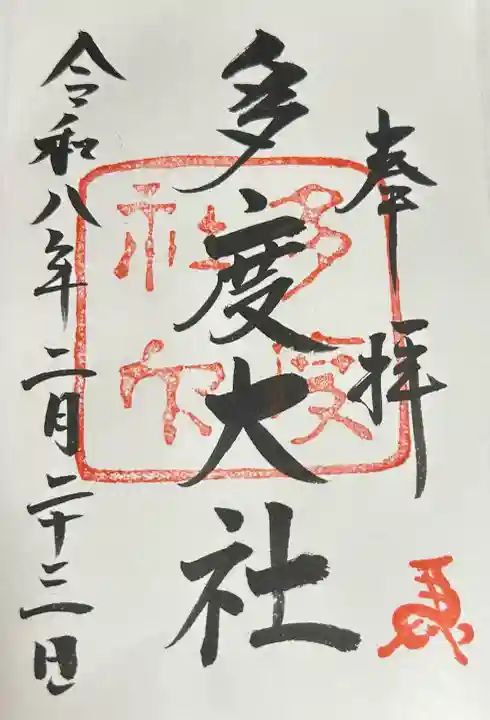 奉拝
多度大社
令和八年二月二十三日
多度
社印